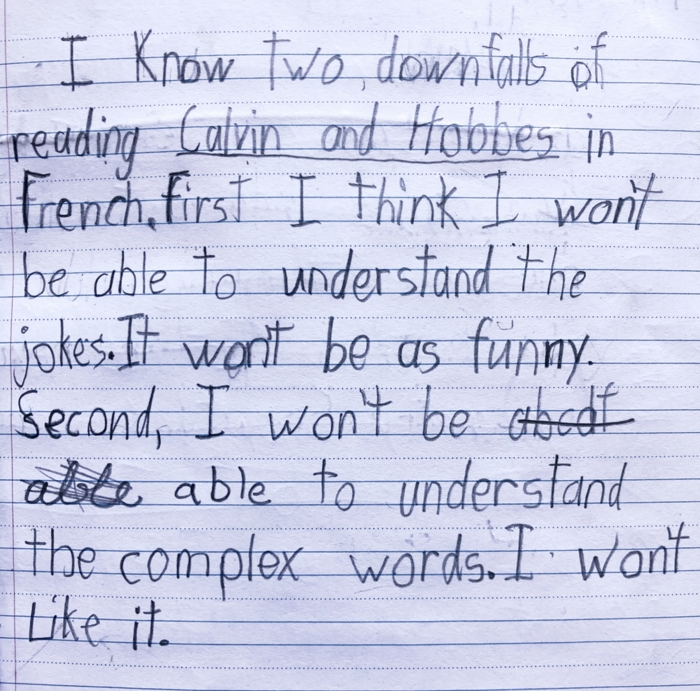 I Know two downfalls of
reading Calvin and Hobbes in
french. first I think I won't
be able to understand the
jokes. It won't be as funny.
Second, I won't be abcdt
able able to understand
the complex words. I won't
Like it.